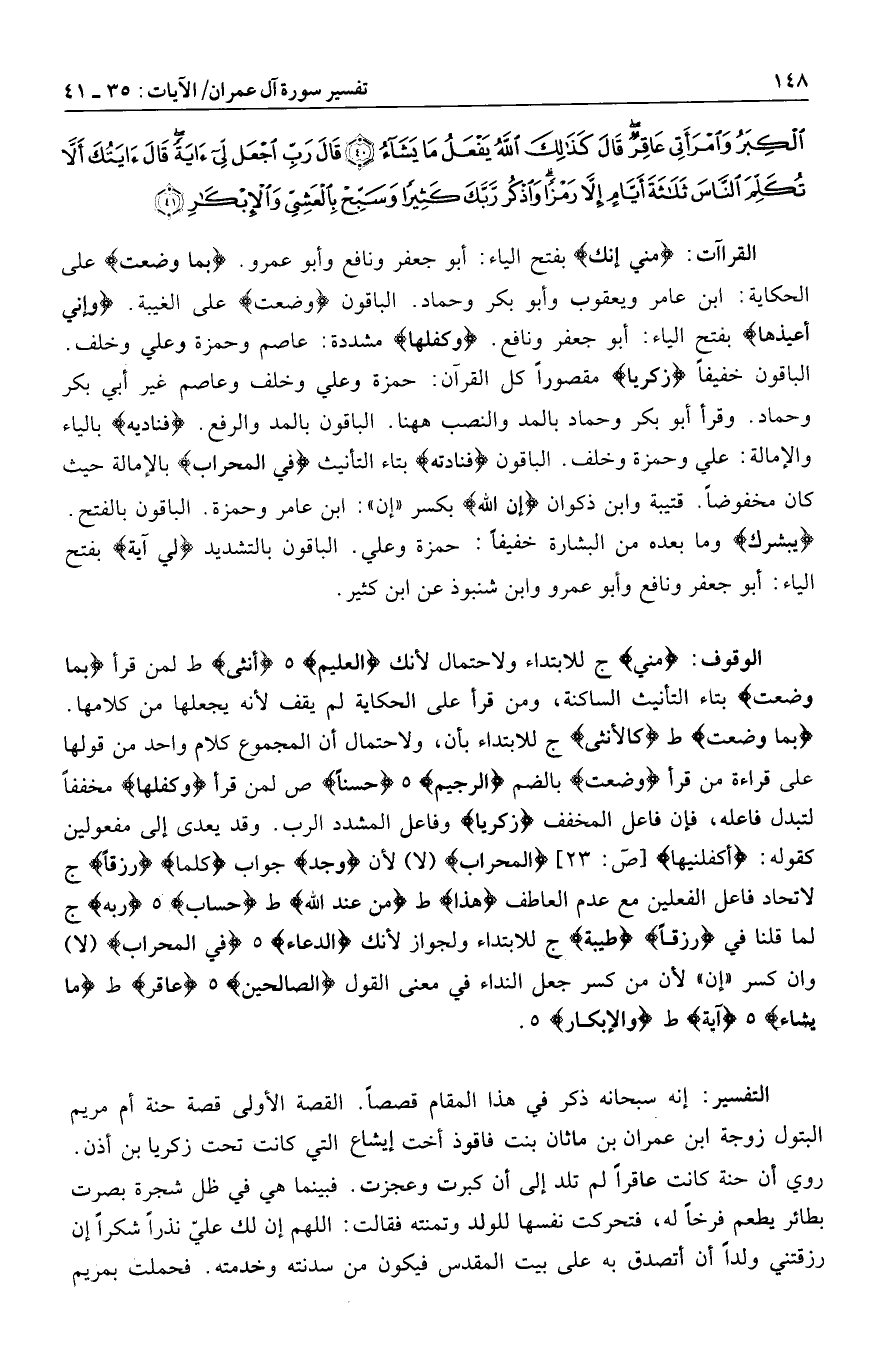 ١٤٨
تفسير سورة آل عمران/ الآيات: ٣٥ - ٤١
ٱلْكِبَرُ وَٱمْرَأَتِى عَاقِرٌۖ قَالَ كَذَٰلِكَ ٱللَّهُ يَفْعَلُ مَا يَشَآءُ ﴿٤٠﴾ قَالَ رَبِّ ٱجْعَل لِّىٓ ءَايَةًۖ قَالَ ءَايَتُكَ أَلَّا
تُكَلِّمَ ٱلنَّاسَ ثَلَٰثَةَ أَيَّامٍ إِلَّا رَمْزًاۗ وَٱذْكُر رَّبَّكَ كَثِيرًا وَسَبِّحْ بِٱلْعَشِىِّ وَٱلْإِبْكَٰرِ ﴿٤١﴾
القراآت: ﴿مني إنك﴾ بفتح الياء: أبو جعفر ونافع وأبو عمرو. ﴿بما وضعت﴾ على
الحكاية: ابن عامر ويعقوب وأبو بكر وحماد. الباقون ﴿وضعت﴾ على الغيبة. ﴿وإني
أعيذها﴾ بفتح الياء: أبو جعفر ونافع. ﴿وكفلها﴾ مشددة: عاصم وحمزة وعلي وخلف.
الباقون خفيفاً ﴿زكريا﴾ مقصوراً كل القرآن: حمزة وعلي وخلف وعاصم غير أبي بكر
وحماد. وقرأ أبو بكر وحماد بالمد والنصب ههنا. الباقون بالمد والرفع. ﴿فناديه﴾ بالياء
والإمالة: علي وحمزة وخلف. الباقون ﴿فنادته﴾ بتاء التأنيث ﴿في المحراب﴾ بالإمالة حيث
كان مخفوضاً. قتيبة وابن ذكوان ﴿إن الله﴾ بكسر «إن»: ابن عامر وحمزة. الباقون بالفتح.
﴿يبشرك﴾ وما بعده من البشارة خفيفاً: حمزة وعلي. الباقون بالتشديد ﴿لي آية﴾ بفتح
الياء: أبو جعفر ونافع وأبو عمرو وابن شنبوذ عن ابن كثير.
الوقوف: ﴿مني﴾ ج للابتداء ولاحتمال لأنك ﴿العليم﴾ ٥ ﴿أنثى﴾ ط لمن قرأ ﴿بما
وضعت﴾ بتاء التأنيث الساكنة، ومن قرأ على الحكاية لم يقف لأنه يجعلها من كلامها.
﴿بما وضعت﴾ ط ﴿كالأنثى﴾ ج للابتداء بأن، ولاحتمال أن المجموع كلام واحد من قولها
على قراءة من قرأ ﴿وضعت﴾ بالضم ﴿الرجيم﴾ ٥ ﴿حسناً﴾ ص لمن قرأ ﴿وكفلها﴾ مخففاً
لتبدل فاعله، فإن فاعل المخفف ﴿زكريا﴾ وفاعل المشدد الرب. وقد يعدى إلى مفعولين
كقوله: ﴿أكفلنيها﴾ [صۤ: ٢٣] ﴿المحراب﴾ (لا) لأن ﴿وجد﴾ جواب ﴿كلما﴾ ﴿رزقاً﴾ ج
لاتحاد فاعل الفعلين مع عدم العاطف ﴿هذا﴾ ط ﴿من عند الله﴾ ط ﴿حساب﴾ ٥ ﴿ربه﴾ ج
لما قلنا في ﴿رزقاً﴾ ﴿طيبة﴾ ج للابتداء ولجواز لأنك ﴿الدعاء﴾ ٥ ﴿في المحراب﴾ (لا)
وان كسر «إن» لأن من كسر جعل النداء في معنى القول ﴿الصالحين﴾ ٥ ﴿عاقر﴾ ط ﴿ما
يشاء﴾ ٥ ﴿آية﴾ ط ﴿والإبكار﴾ ٥.
التفسير: إنه سبحانه ذكر في هذا المقام قصصاً. القصة الأولى قصة حنة أم مريم
البتول زوجة ابن عمران بن ماثان بنت فاقوذ أخت إيشاع التي كانت تحت زكريا بن أذن.
روي أن حنة كانت عاقراً لم تلد إلى أن كبرت وعجزت. فبينما هي في ظل شجرة بصرت
بطائر يطعم فرخاً له، فتحركت نفسها للولد وتمنته فقالت: اللهم إن لك عليّ نذراً شكراً إن
رزقتني ولداً أن أتصدق به على بيت المقدس فيكون من سدنته وخدمته. فحملت بمريم